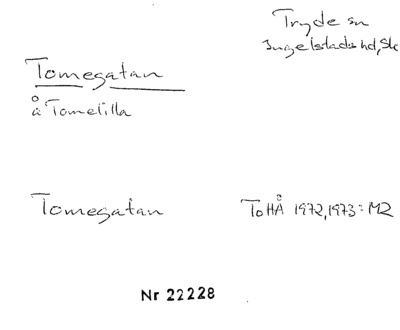 Tryde sn
Ingelstads hd, Sk
Tomegatan
å Tomelilla
Tomegatan
ToHÅ 1972, 1973: M2
Nr 22228